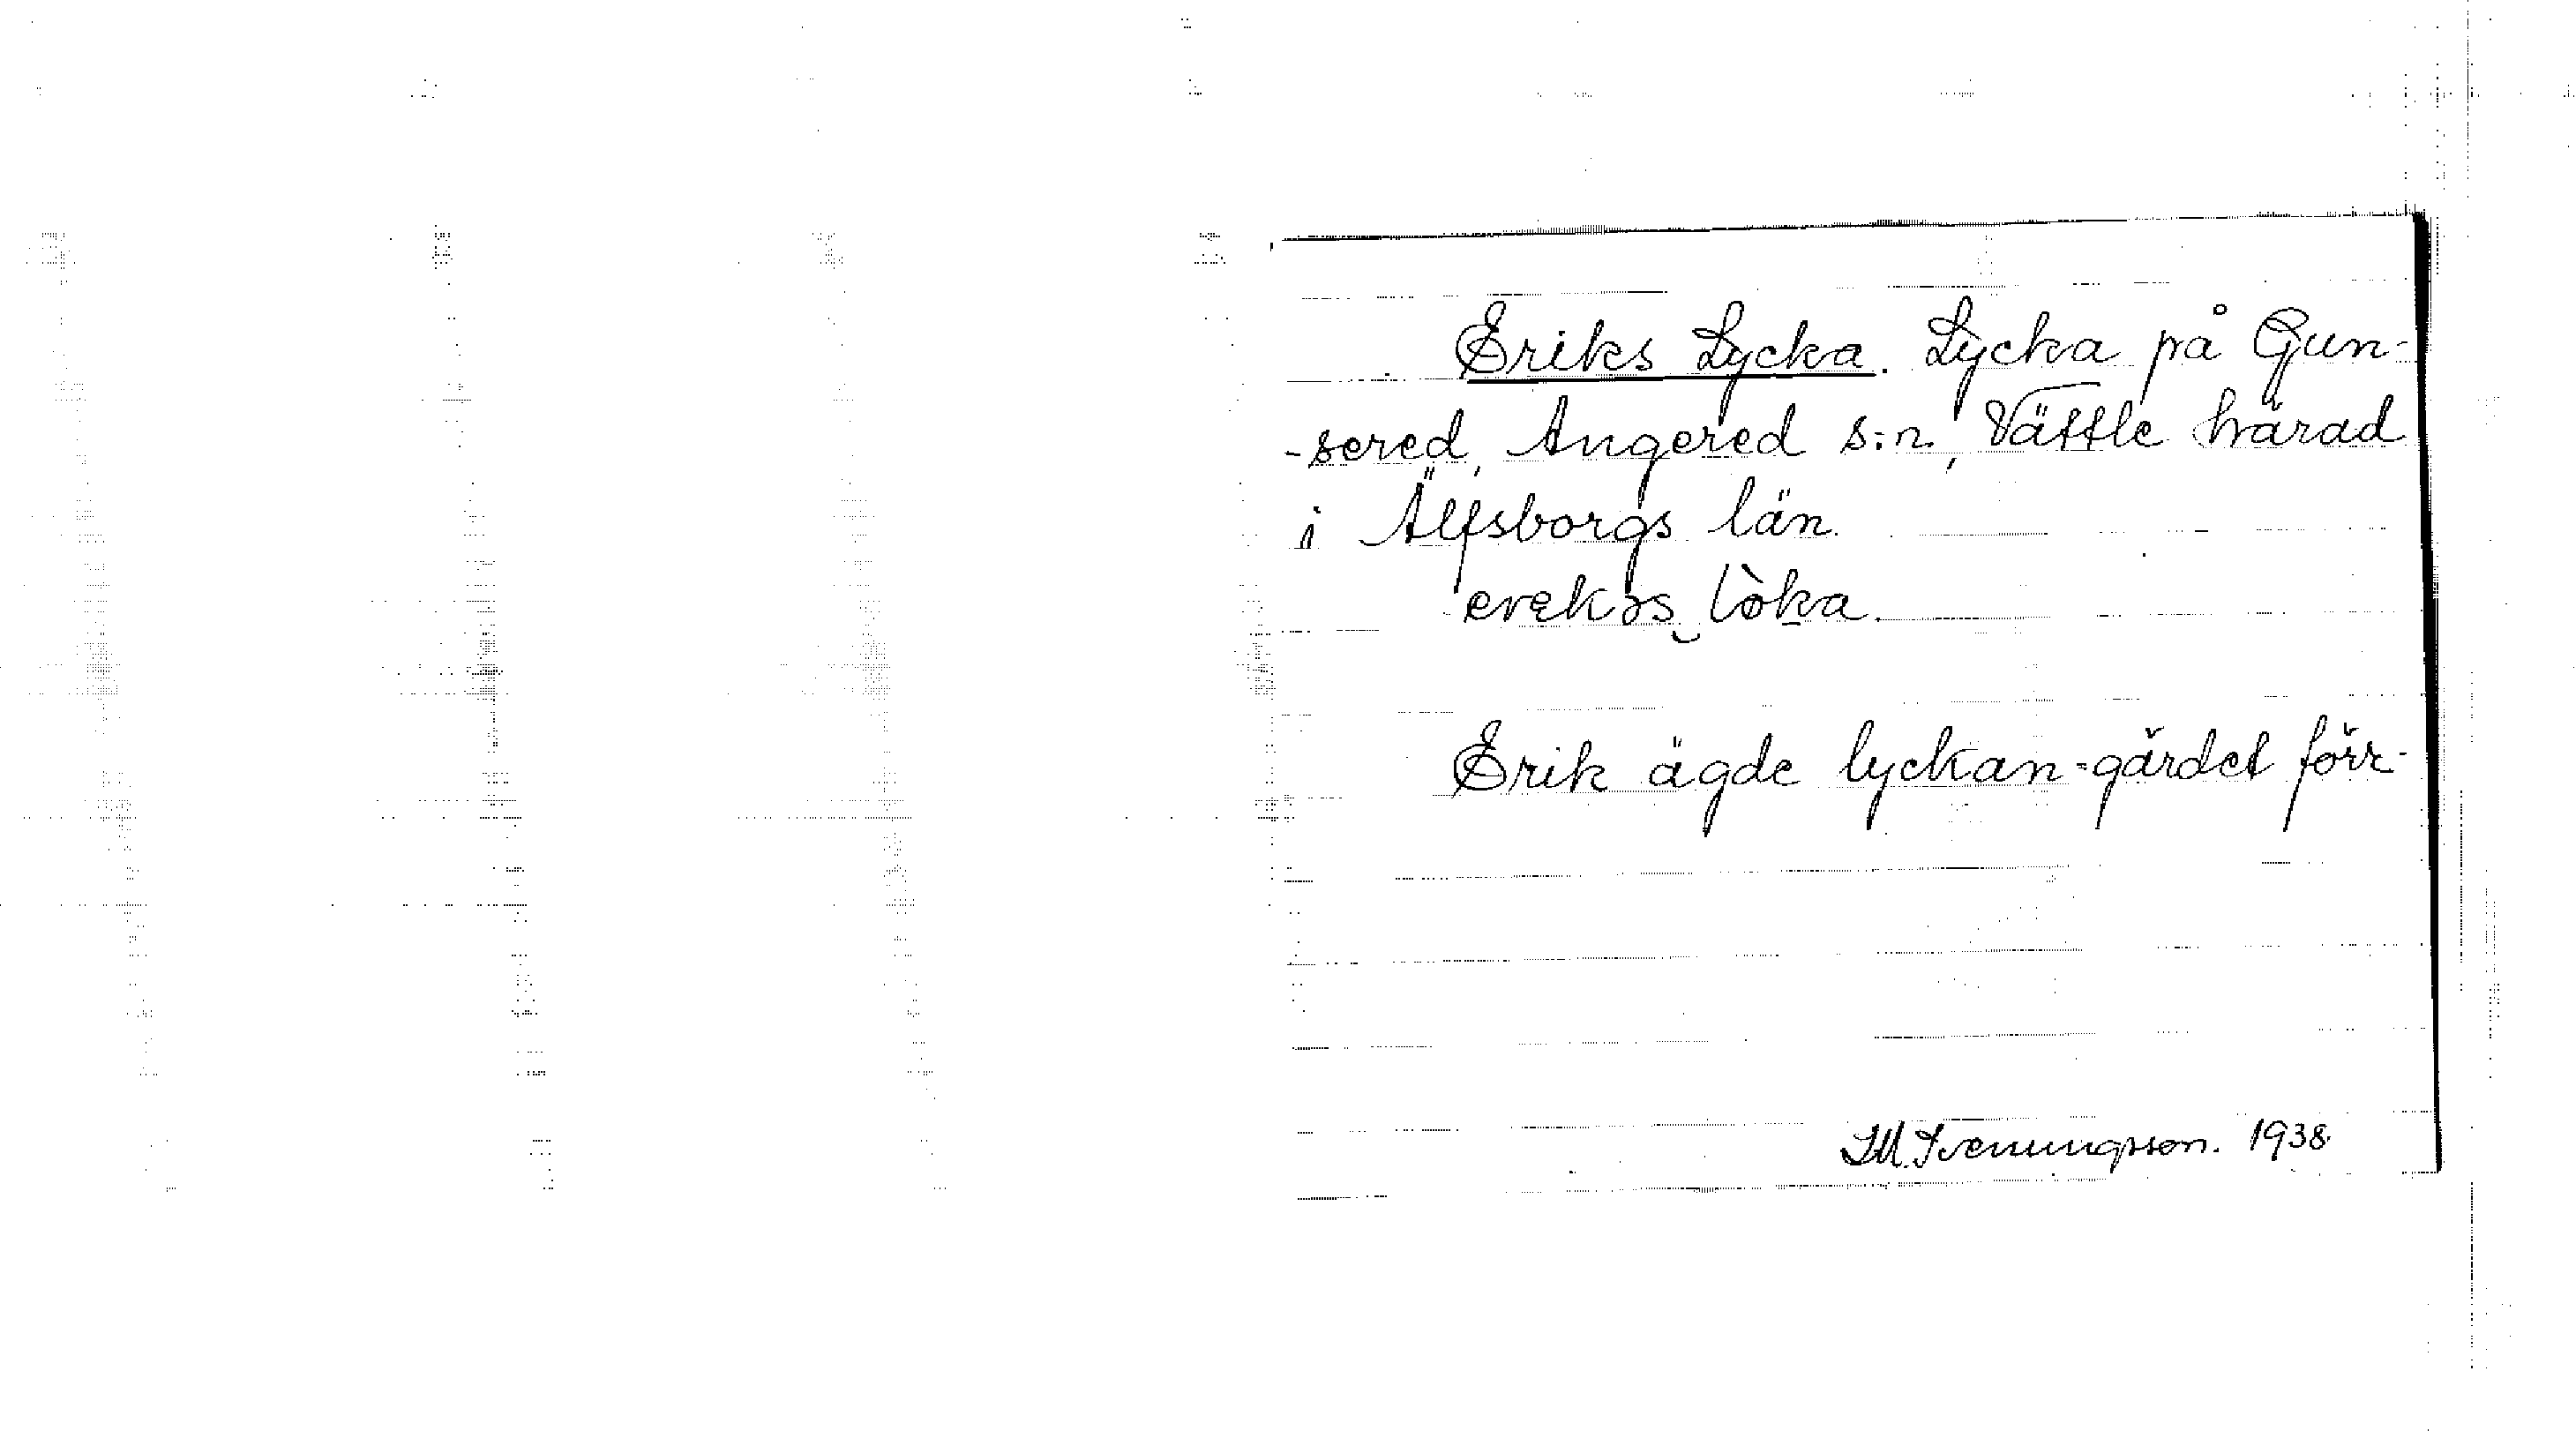 Eriks Lycka. Lycka på Gun-
-sered, Angered s:n, Vättle härad
i Älfsborgs län.
erękəs‿lòka.
Erik ägde lyckan-gärdet förr-
I.M. Svenungsson. 1938